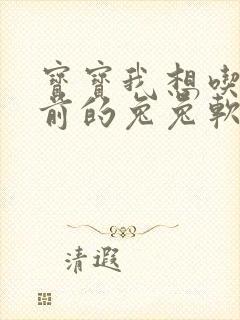 寶寶我想喫
前的兔兔軟
清遐